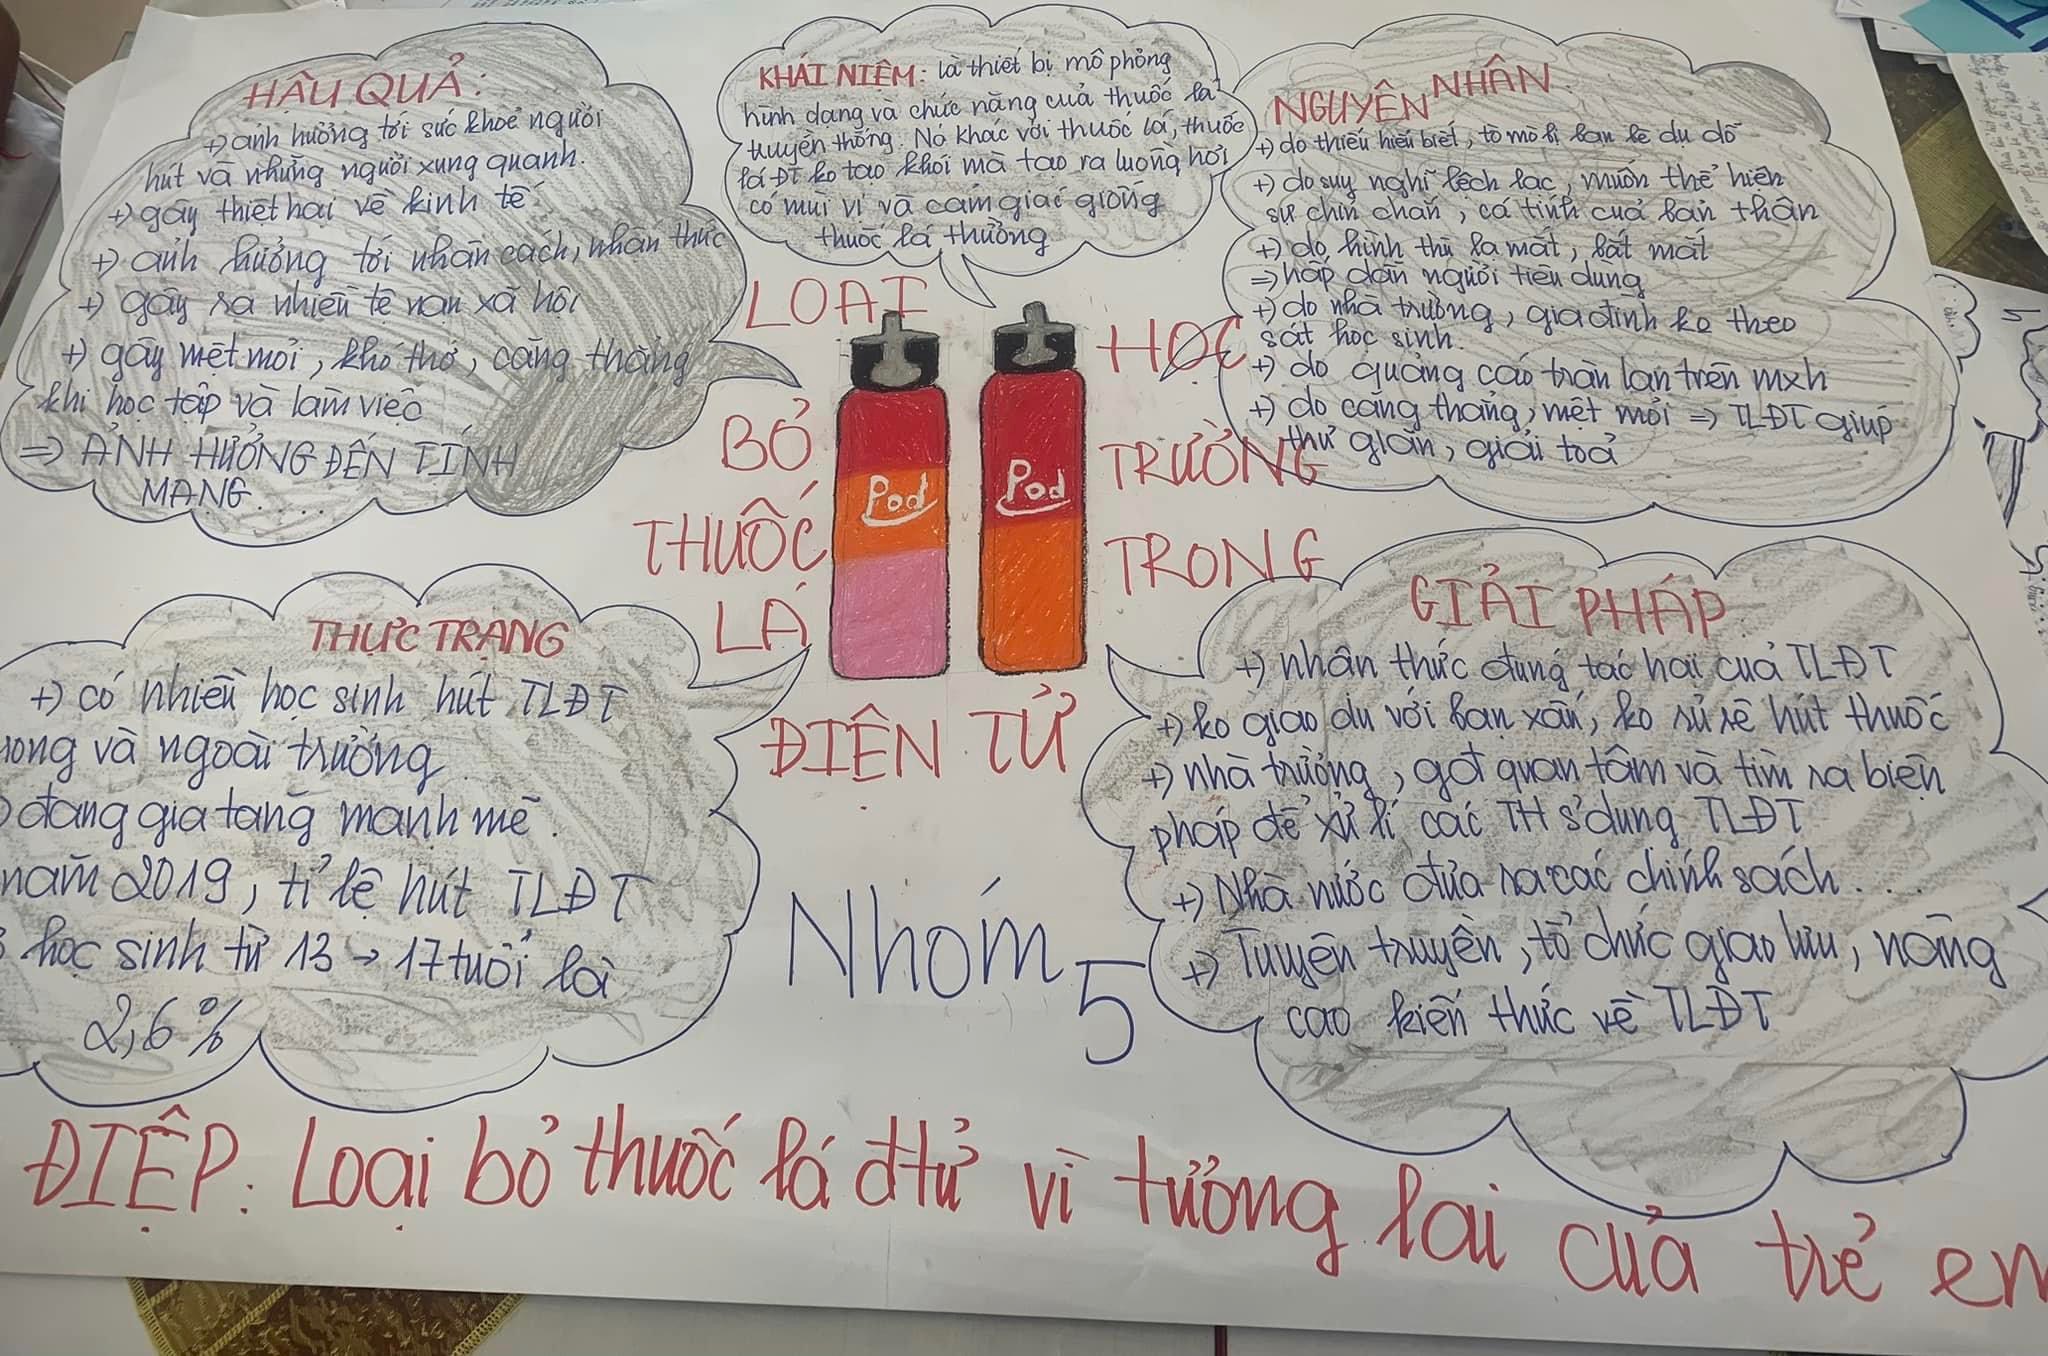 HẬU QUẢ:
+) ảnh hưởng tới sức khoẻ người
hút và những người xung quanh.
+) gây thiệt hại về kinh tế
+) ảnh hưởng tới nhân cách, nhận thức
+) gây ra nhiều tệ nạn xã hội
+) gây mệt mỏi, khó thở, căng thẳng
khi học tập và làm việc
=> ẢNH HƯỞNG ĐẾN TÍNH
MẠNG.....
KHÁI NIỆM: là thiết bị mô phỏng
hình dạng và chức năng cuả thuốc lá
truyền thống. Nó khác với thuốc lá, thuốc
lá ĐT ko tạo khói mà tạo ra luồng hơi
có mùi vị và cảm giác giống
thuốc lá thường
NGUYÊN NHÂN:
+) do thiếu hiểu biết, tò mò bị bạn bè dụ dỗ
+) do suy nghĩ lệch lạc, muốn thể hiện
sự chín chắn, cá tính cuả bản thân
+) do hình thù lạ mắt, bắt mắt
=> hấp dẫn người tiêu dùng
+) do nhà trường, gia đình ko theo
sát học sinh.
+) do quảng cáo tràn lan trên mxh
+) do căng thẳng, mệt mỏi => TLĐT giúp
thư giãn, giải toả
LOẠI
BỎ
THUỐC
LÁ
ĐIỆN TỬ
TRONG
TRƯỜNG
HỌC
THỰC TRẠNG
+) có nhiều học sinh hút TLĐT
rong và ngoài trường
) đang gia tăng mạnh mẽ.
năm 2019, tỉ lệ hút TLĐT
học sinh từ 13 → 17 tuổi là
2,6%
Pod
Pod
GIẢI PHÁP
+) nhận thức đúng tác hại cuả TLĐT
+) ko giao du với bạn xấu, ko rủ rê hút thuốc
+) nhà trường, gđ quan tâm và tìm ra biện
pháp để xử lí các TH sử dụng TLĐT
+) Nhà nước đưa ra các chính sách....
+) Tuyên truyền, tổ chức giao lưu, nâng
cao kiến thức về TLĐT
Nhóm 5
ĐIỆP: Loại bỏ thuốc lá đtử vì tương lai của trẻ em